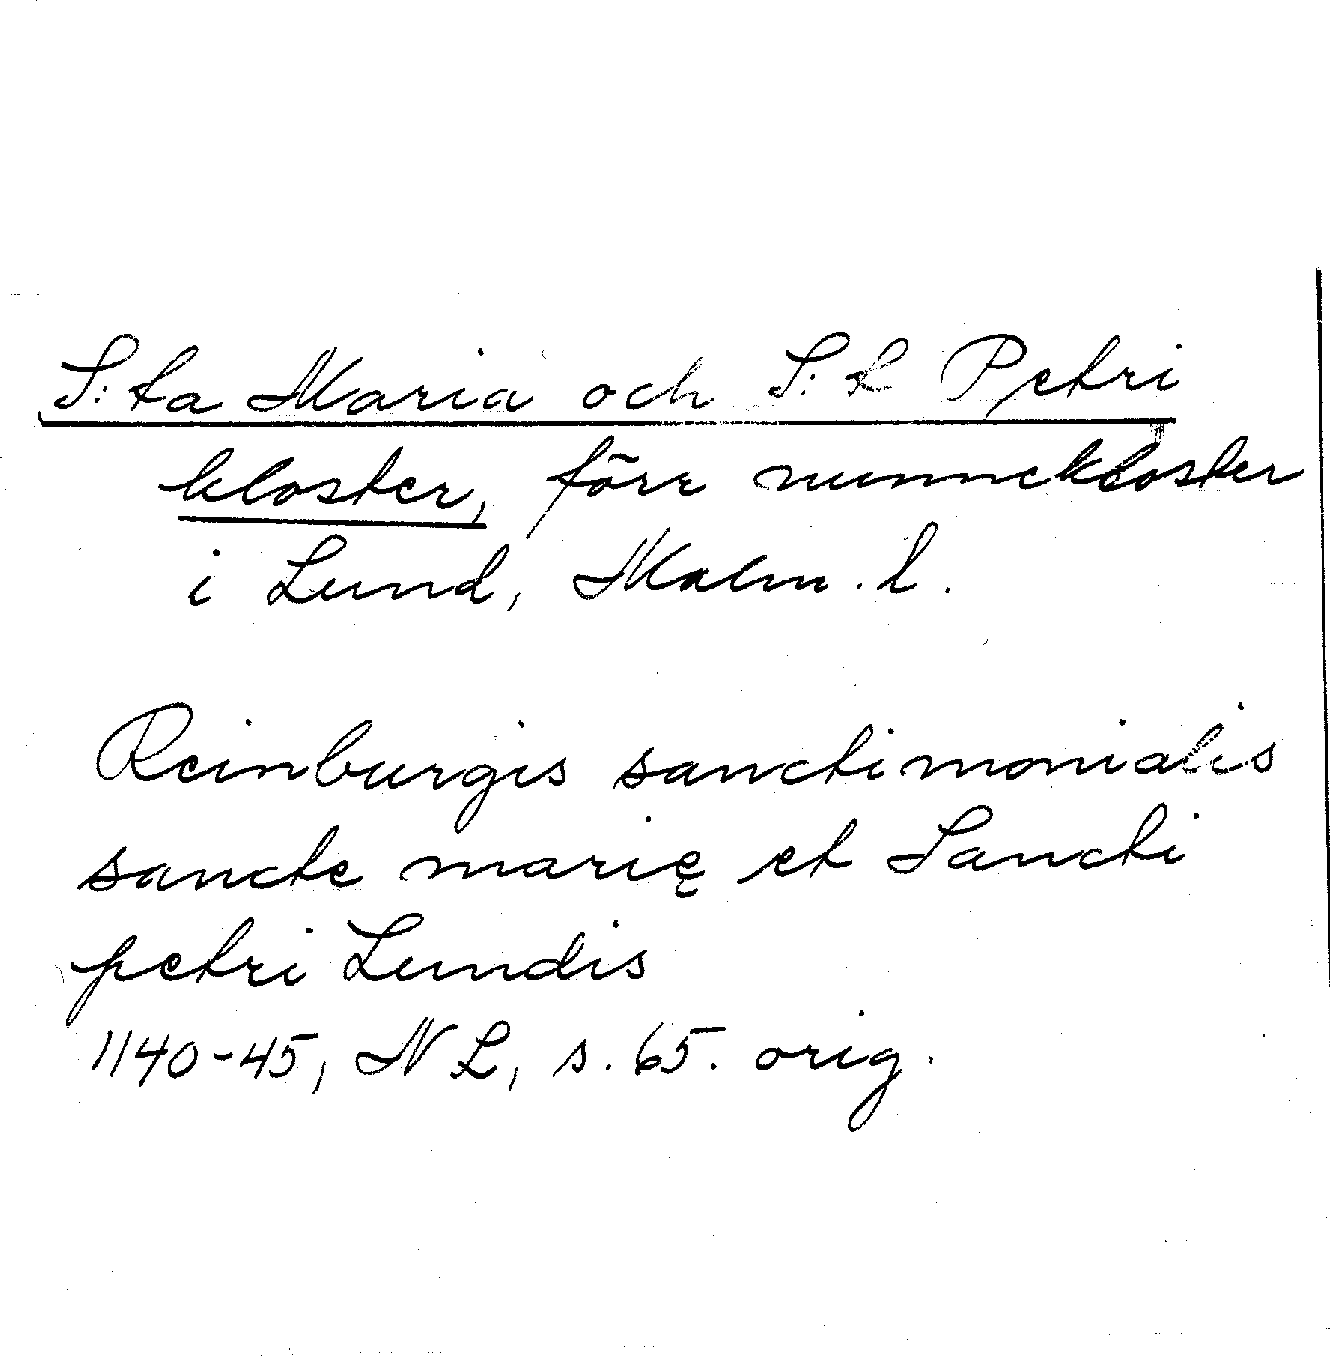 S:ta Maria och S:t Petri
kloster, förr nunnekloster
i Lund, Malm. l.
Reinburgis sanctimonialis
sancte marię et Sancti
petri Lundis
1140-45, NL, s. 65. orig.